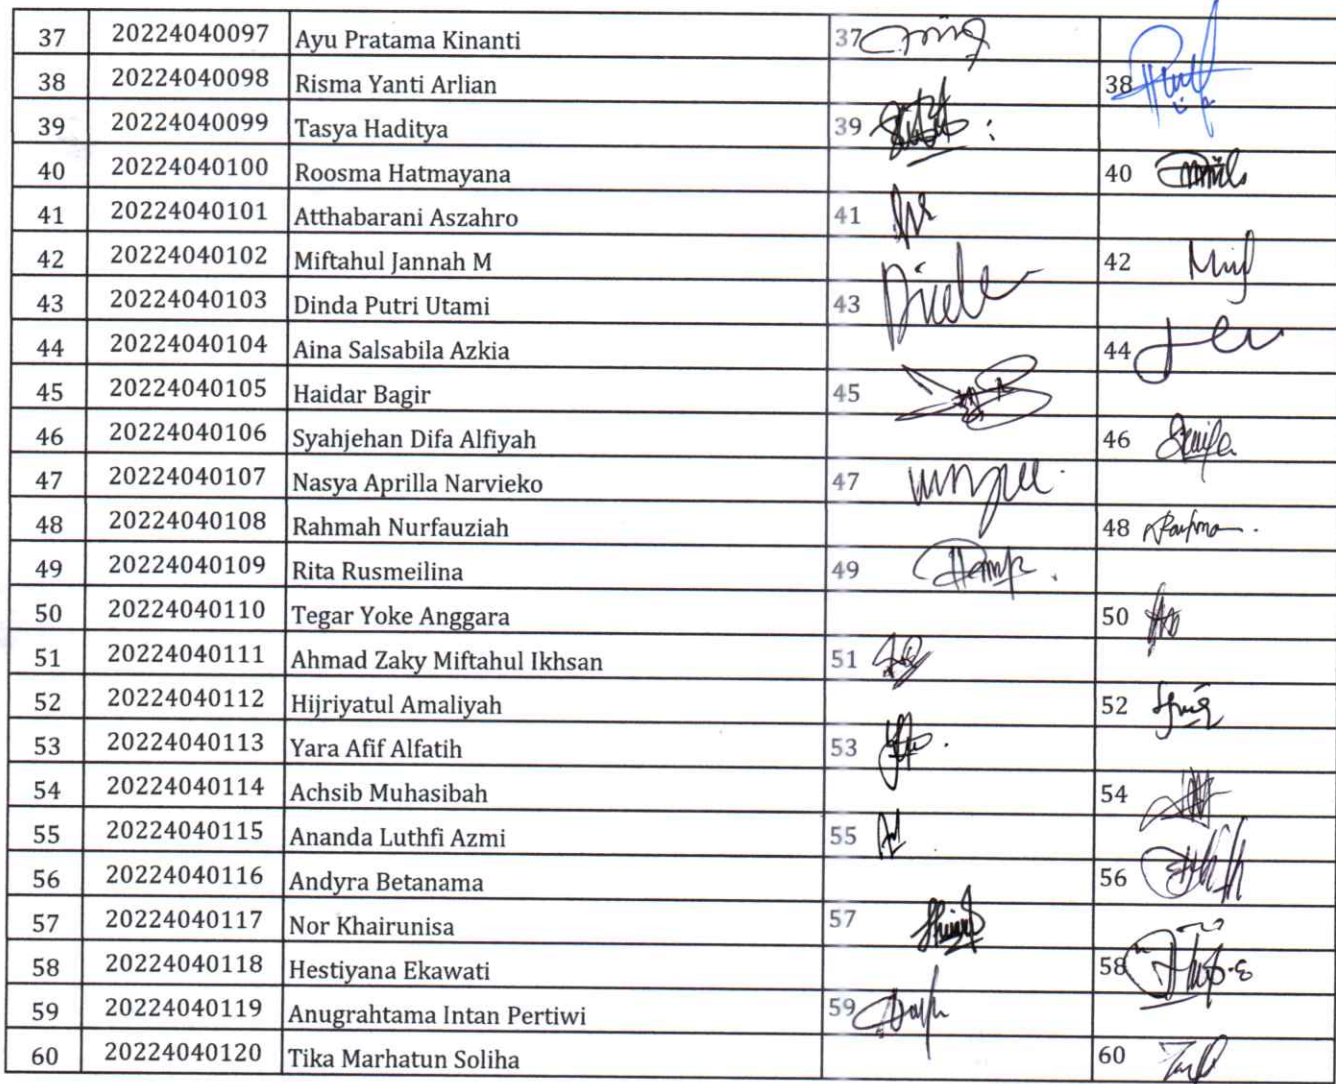 37 20224040097 Ayu Pratama Kinanti 37
38 20224040098 Risma Yanti Arlian 38
39 20224040099 Tasya Haditya 39
40 20224040100 Roosma Hatmayana 40
41 20224040101 Atthabarani Aszahro 41
42 20224040102 Miftahul Jannah M 42
43 20224040103 Dinda Putri Utami 43
44 20224040104 Aina Salsabila Azkia 44
45 20224040105 Haidar Bagir 45
46 20224040106 Syahjehan Difa Alfiyah 46
47 20224040107 Nasya Aprilla Narvieko 47
48 20224040108 Rahmah Nurfauziah 48
49 20224040109 Rita Rusmeilina 49
50 20224040110 Tegar Yoke Anggara 50
51 20224040111 Ahmad Zaky Miftahul Ikhsan 51
52 20224040112 Hijriyatul Amaliyah 52
53 20224040113 Yara Afif Alfatih 53
54 20224040114 Achsib Muhasibah 54
55 20224040115 Ananda Luthfi Azmi 55
56 20224040116 Andyra Betanama 56
57 20224040117 Nor Khairunisa 57
58 20224040118 Hestiyana Ekawati 58
59 20224040119 Anugrahtama Intan Pertiwi 59
60 20224040120 Tika Marhatun Soliha 60